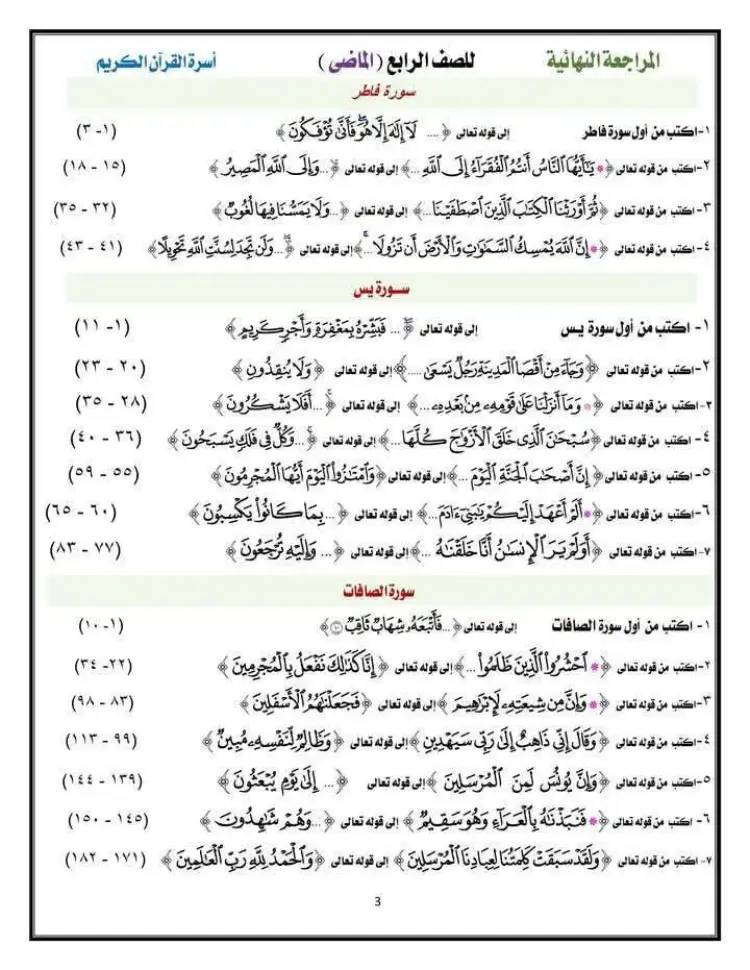 المراجعة النهائية للصف الرابع (الماضى) أسرة القرآن الكريم
سورة فاطر
١- اكتب من أول سورة فاطر إلى قوله تعالى ﴿ ... لَآ إِلَٰهَ إِلَّا هُوَۖ فَأَنَّىٰ تُؤْفَكُونَ ﴾ (١- ٣)
٢- اكتب من قوله تعالى ﴿* يَٰٓأَيُّهَا ٱلنَّاسُ أَنتُمُ ٱلْفُقَرَآءُ إِلَى ٱللَّهِ ...﴾ إلى قوله تعالى ﴿ ...وَإِلَى ٱللَّهِ ٱلْمَصِيرُ ﴾ (١٥ - ١٨)
٣- اكتب من قوله تعالى ﴿ثُمَّ أَوْرَثْنَا ٱلْكِتَٰبَ ٱلَّذِينَ ٱصْطَفَيْنَا...﴾ إلى قوله تعالى ﴿ ...وَلَا يَمَسُّنَا فِيهَا لُغُوبٌ﴾ (٣٢ - ٣٥)
٤- اكتب من قوله تعالى ﴿* إِنَّ ٱللَّهَ يُمْسِكُ ٱلسَّمَٰوَٰتِ وَٱلْأَرْضَ أَن تَزُولَا ...﴾ إلى قوله تعالى ﴿ ...وَلَن تَجِدَ لِسُنَّتِ ٱللَّهِ تَحْوِيلًا﴾ (٤١ - ٤٣)
سورة يس
١- اكتب من أول سورة يس إلى قوله تعالى ﴿ ... فَبَشِّرْهُ بِمَغْفِرَةٍ وَأَجْرٍ كَرِيمٍ ﴾ (١- ١١)
٢- اكتب من قوله تعالى ﴿وَجَآءَ مِنْ أَقْصَا ٱلْمَدِينَةِ رَجُلٌ يَسْعَىٰ .....﴾ إلى قوله تعالى ﴿ وَلَا يُنقِذُونِ ﴾ (٢٠ - ٢٣)
٣- اكتب من قوله تعالى ﴿* وَمَآ أَنزَلْنَا عَلَىٰ قَوْمِهِۦ مِنۢ بَعْدِهِۦ ...﴾ إلى قوله تعالى ﴿ ...أَفَلَا يَشْكُرُونَ ﴾ (٢٨ - ٣٥)
٤- اكتب من قوله تعالى ﴿سُبْحَٰنَ ٱلَّذِى خَلَقَ ٱلْأَزْوَٰجَ كُلَّهَا...﴾ إلى قوله تعالى ﴿ ...وَكُلٌّ فِى فَلَكٍ يَسْبَحُونَ ﴾ (٣٦ - ٤٠)
٥- اكتب من قوله تعالى ﴿ إِنَّ أَصْحَٰبَ ٱلْجَنَّةِ ٱلْيَوْمَ ...﴾ إلى قوله تعالى ﴿وَٱمْتَٰزُوا۟ ٱلْيَوْمَ أَيُّهَا ٱلْمُجْرِمُونَ ﴾ (٥٥ - ٥٩)
٦- اكتب من قوله تعالى ﴿* أَلَمْ أَعْهَدْ إِلَيْكُمْ يَٰبَنِىٓ ءَادَمَ...﴾ إلى قوله تعالى ﴿ ...بِمَا كَانُوا۟ يَكْسِبُونَ ﴾ (٦٠ - ٦٥)
٧- اكتب من قوله تعالى ﴿أَوَلَمْ يَرَ ٱلْإِنسَٰنُ أَنَّا خَلَقْنَٰهُ ...﴾ إلى قوله تعالى ﴿ ... وَإِلَيْهِ تُرْجَعُونَ ﴾ (٧٧ - ٨٣)
سورة الصافات
١- اكتب من أول سورة الصافات إلى قوله تعالى ﴿ ...فَأَتْبَعَهُۥ شِهَابٌ ثَاقِبٌ ۝١٠﴾ (١- ١٠)
٢- اكتب من قوله تعالى ﴿* ٱحْشُرُوا۟ ٱلَّذِينَ ظَلَمُوا۟ ...﴾ إلى قوله تعالى ﴿ إِنَّا كَذَٰلِكَ نَفْعَلُ بِٱلْمُجْرِمِينَ ﴾ (٢٢- ٣٤)
٣- اكتب من قوله تعالى ﴿* وَإِنَّ مِن شِيعَتِهِۦ لَإِبْرَٰهِيمَ ﴾ إلى قوله تعالى ﴿ فَجَعَلْنَٰهُمُ ٱلْأَسْفَلِينَ ﴾ (٨٣ - ٩٨)
٤- اكتب من قوله تعالى ﴿ وَقَالَ إِنِّى ذَاهِبٌ إِلَىٰ رَبِّى سَيَهْدِينِ ﴾ إلى قوله تعالى ﴿ وَظَالِمٌ لِّنَفْسِهِۦ مُبِينٌ ﴾ (٩٩ - ١١٣)
٥- اكتب من قوله تعالى ﴿ وَإِنَّ يُونُسَ لَمِنَ ٱلْمُرْسَلِينَ ﴾ إلى قوله تعالى ﴿ ... إِلَىٰ يَوْمِ يُبْعَثُونَ ﴾ (١٣٩ - ١٤٤)
٦- اكتب من قوله تعالى ﴿* فَنَبَذْنَٰهُ بِٱلْعَرَآءِ وَهُوَ سَقِيمٌ ﴾ إلى قوله تعالى ﴿ ...وَهُمْ شَٰهِدُونَ ﴾ (١٤٥ - ١٥٠)
٧- اكتب من قوله تعالى ﴿ وَلَقَدْ سَبَقَتْ كَلِمَتُنَا لِعِبَادِنَا ٱلْمُرْسَلِينَ ﴾ إلى قوله تعالى ﴿ وَٱلْحَمْدُ لِلَّهِ رَبِّ ٱلْعَٰلَمِينَ ﴾ (١٧١ - ١٨٢)
3